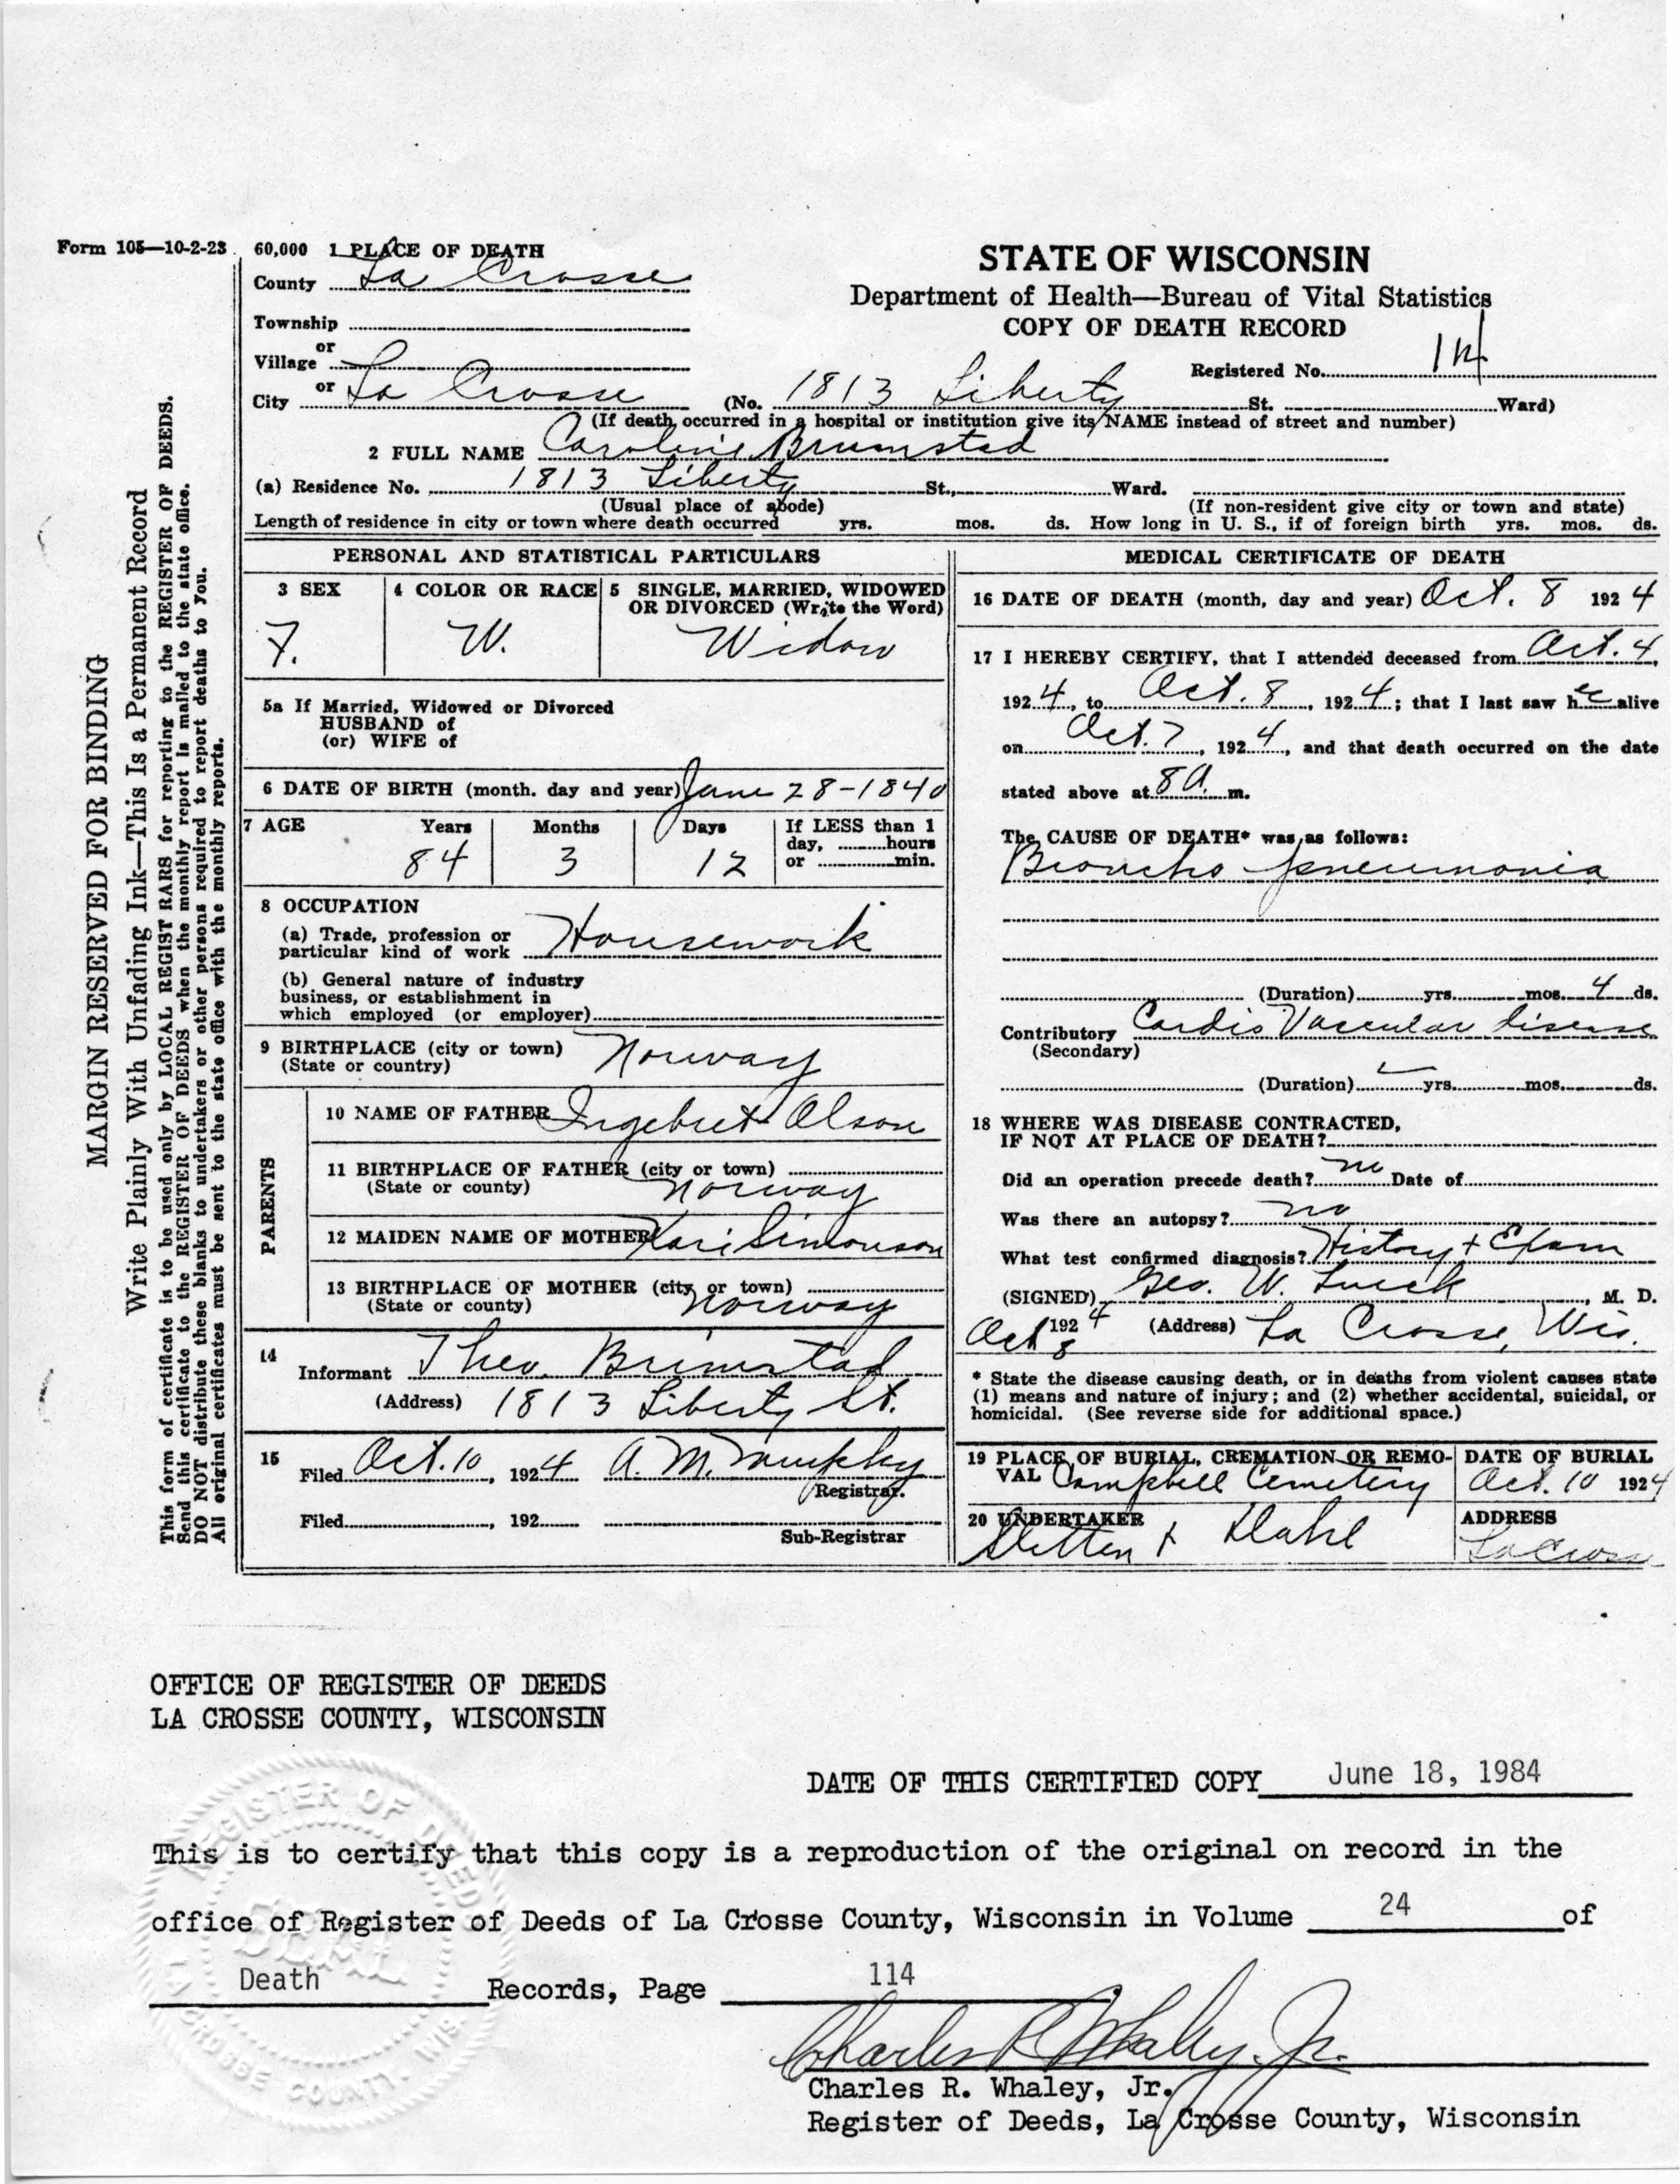 Form 105—10-2-23 60,000 1 PLACE OF DEATH
County La Crosse
Township
or
Village
or
City La Crosse (No. 1813 Liberty St. Ward)
STATE OF WISCONSIN
Department of Health—Bureau of Vital Statistics
COPY OF DEATH RECORD
Registered No. 114
(If death occurred in a hospital or institution give its NAME instead of street and number)
2 FULL NAME Caroline Brumstad
(a) Residence No. 1813 Liberty St., Ward.
(Usual place of abode) (If non-resident give city or town and state)
Length of residence in city or town where death occurred yrs. mos. ds. How long in U. S., if of foreign birth yrs. mos. ds.
MARGIN RESERVED FOR BINDING
Write Plainly With Unfading Ink—This Is a Permanent Record
This form of certificate is to be used only by LOCAL REGIST RARS for reporting to the REGISTER OF DEEDS.
Send this certificate to the REGISTER OF DEEDS when the monthly report is mailed to the state office.
DO NOT distribute these blanks to undertakers or other persons required to report deaths to you.
All original certificates must be sent to the state office with the monthly reports.
PERSONAL AND STATISTICAL PARTICULARS
3 SEX
F.
4 COLOR OR RACE
W.
5 SINGLE, MARRIED, WIDOWED
OR DIVORCED (Write the Word)
Widow
5a If Married, Widowed or Divorced
HUSBAND of
(or) WIFE of
6 DATE OF BIRTH (month. day and year) June 28-1840
7 AGE Years Months Days If LESS than 1
day, hours
84 3 12 or min.
8 OCCUPATION
(a) Trade, profession or
particular kind of work Housework
(b) General nature of industry
business, or establishment in
which employed (or employer)
9 BIRTHPLACE (city or town)
(State or country) Norway
PARENTS
10 NAME OF FATHER Ingebret Olson
11 BIRTHPLACE OF FATHER (city or town)
(State or county) Norway
12 MAIDEN NAME OF MOTHER Kari Simonson
13 BIRTHPLACE OF MOTHER (city or town)
(State or county) Norway
14
Informant Theo. Brimstad
(Address) 1813 Liberty St.
15
Filed Oct. 10, 1924 A. M. Murphy
Registrar.
Filed , 192
Sub-Registrar
MEDICAL CERTIFICATE OF DEATH
16 DATE OF DEATH (month, day and year) Oct. 8 1924
17 I HEREBY CERTIFY, that I attended deceased from Oct. 4,
1924, to Oct. 8, 1924; that I last saw her alive
on Oct. 7, 1924, and that death occurred on the date
stated above at 8 A. m.
The CAUSE OF DEATH* was as follows:
Broncho pneumonia
(Duration) yrs. mos. 4 ds.
Contributory Cardio Vascular disease
(Secondary)
(Duration) yrs. mos. ds.
18 WHERE WAS DISEASE CONTRACTED,
IF NOT AT PLACE OF DEATH?
Did an operation precede death? no Date of
Was there an autopsy? no
What test confirmed diagnosis? History + Exam
(SIGNED) Geo. W. Lueck, M. D.
Oct 8 1924 (Address) La Crosse, Wis.
* State the disease causing death, or in deaths from violent causes state
(1) means and nature of injury; and (2) whether accidental, suicidal, or
homicidal. (See reverse side for additional space.)
19 PLACE OF BURIAL, CREMATION OR REMO-
VAL Campbell Cemetery
DATE OF BURIAL
Oct. 10 1924
20 UNDERTAKER
Sletten & Dahl
ADDRESS
La Crosse
OFFICE OF REGISTER OF DEEDS
LA CROSSE COUNTY, WISCONSIN
DATE OF THIS CERTIFIED COPY June 18, 1984
This is to certify that this copy is a reproduction of the original on record in the
office of Register of Deeds of La Crosse County, Wisconsin in Volume 24 of
Death Records, Page 114
Charles R. Whaley, Jr.
Charles R. Whaley, Jr.
Register of Deeds, La Crosse County, Wisconsin
REGISTER OF DEEDS
SEAL
LA CROSSE COUNTY, WIS.